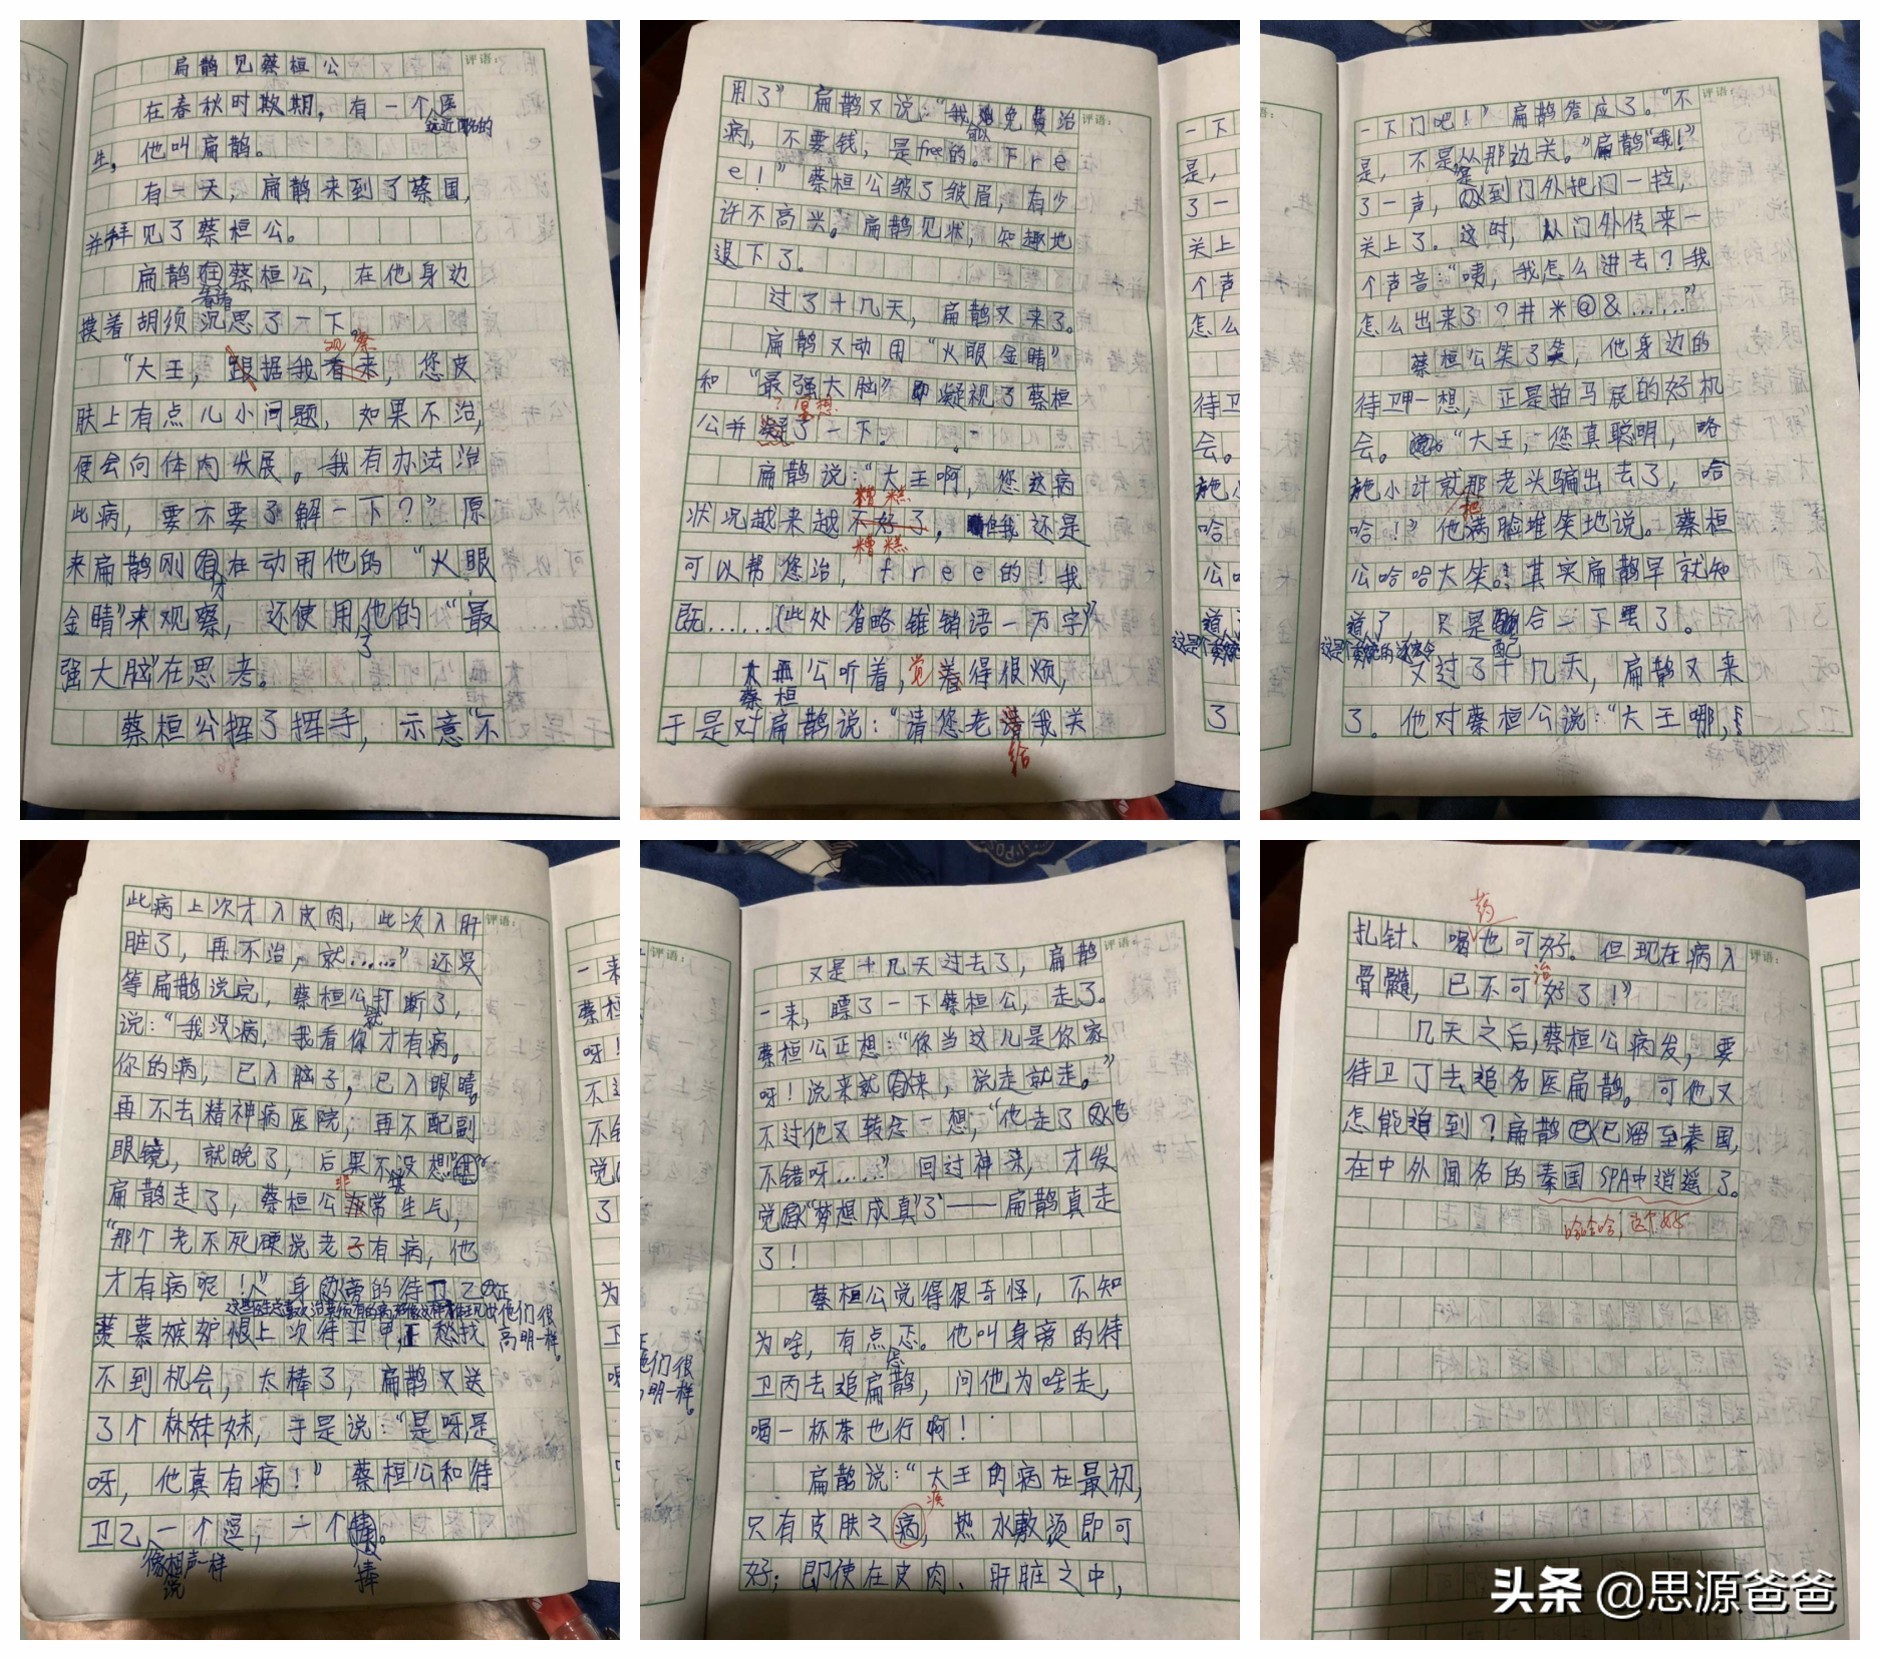 扁鹊见蔡桓公
评语:
在春秋时期，有一个医
远近闻名的
生，他叫扁鹊。
有一天，扁鹊来到了蔡国，
并拜见了蔡桓公。
扁鹊在蔡桓公，在他身边
看着
摸着胡须沉思了一下
观察
“大王，跟据我看来，您皮
肤上有点儿小问题，如果不治，
便会向体内发展。我有办法治
此病，要不要了解一下？”原
来扁鹊刚在动用他的“火眼
才
金睛”来观察，还使用他的“最
了
强大脑”在思考。
蔡桓公挥了挥手，示意“不
用了”扁鹊又说：“我免费治
可以
评语:
病，不要钱，是free的。下fre
e！”蔡桓公皱了皱眉，有少
许不高兴。扁鹊见状，知趣地
退下了。
过了十几天，扁鹊又来了。
扁鹊又动用“火眼金睛”
和“最强大脑”凝视了蔡桓
？冥想
公并了一下。
扁鹊说：“大王啊，您这病
糟糕
状况越来越不好了，但我还是
糟糕
可以帮您治，free的！我
既……(此处省略推销语一万字)”
公听着，觉着得很烦，
蔡桓
于是对扁鹊说：“请您老请我关
给
一下门吧！”扁鹊答应了。“不
评语:
是，不是从那边关。”扁鹊“哦！”
是
了一声，到门外把门一拉，
关上了。这时，从门外传来一
个声音：“咦，我怎么进去？我
怎么出来了？井米@&……”
蔡桓公笑了笑，他身边的
待卫甲一想，正是拍马屁的好机
会。“大王，您真聪明，略
施小计就那老头骗出去了，哈
把
哈！”他满脸堆笑地说。蔡桓
公哈哈大笑。其实扁鹊早就知
道了，只是合一下罢了。
配
又过了十几天，扁鹊又来
了。他对蔡桓公说：“大王哪，
此病上次才入皮肉，此次入肝
评语:
脏了，再不治，就……”还没
等扁鹊说完，蔡桓公打断了，
就
说：“我没病，我看你才有病。
你的病，已入脑子，已入眼睛，
再不去精神病医院；再不配副
眼镜，就晚了，后果不没想”
堪
扁鹊走了，蔡桓公常生气，
非
“那个老不死硬说老子有病，他
才有病呢！”身旁的待卫乙
他们很
羡慕嫉妒恨上次待卫甲，正愁找
高明一样。
不到机会，太棒了，扁鹊又送
了个林妹妹，于是说：“是呀，是
呀，他真有病！”蔡桓公和待
卫乙一个逗，一个。
像相声一样
说
捧
又是十几天过去了，扁鹊
评语:
一来，瞟了一下蔡桓公，走了。
蔡桓公正想：“你当这儿是你家
呀！说来就来，说走就走。”
不过他又转念一想，“他走了也
不错呀……”回过神来，才发
觉“梦想成真”了——扁鹊真走
了！
蔡桓公觉得很奇怪，不知
为啥，有点忐。他叫身旁的待
忑
卫丙去追扁鹊，问他为啥走，
喝一杯茶也行啊！
扁鹊说：“大王的病在最初，
疾
只有皮肤之病，热水敷烫即可
好；即使在皮肉、肝脏之中，
药
扎针、喝也可好。但现在病入
评语:
治
骨髓，已不可好了！”
几天之后，蔡桓公病发，要
待卫丁去追名医扁鹊。可他又
怎能追到？扁鹊已溜至秦国，
在中外闻名的秦国SPA中逍遥了。
哈哈哈，这个好
头条 @思源爸爸